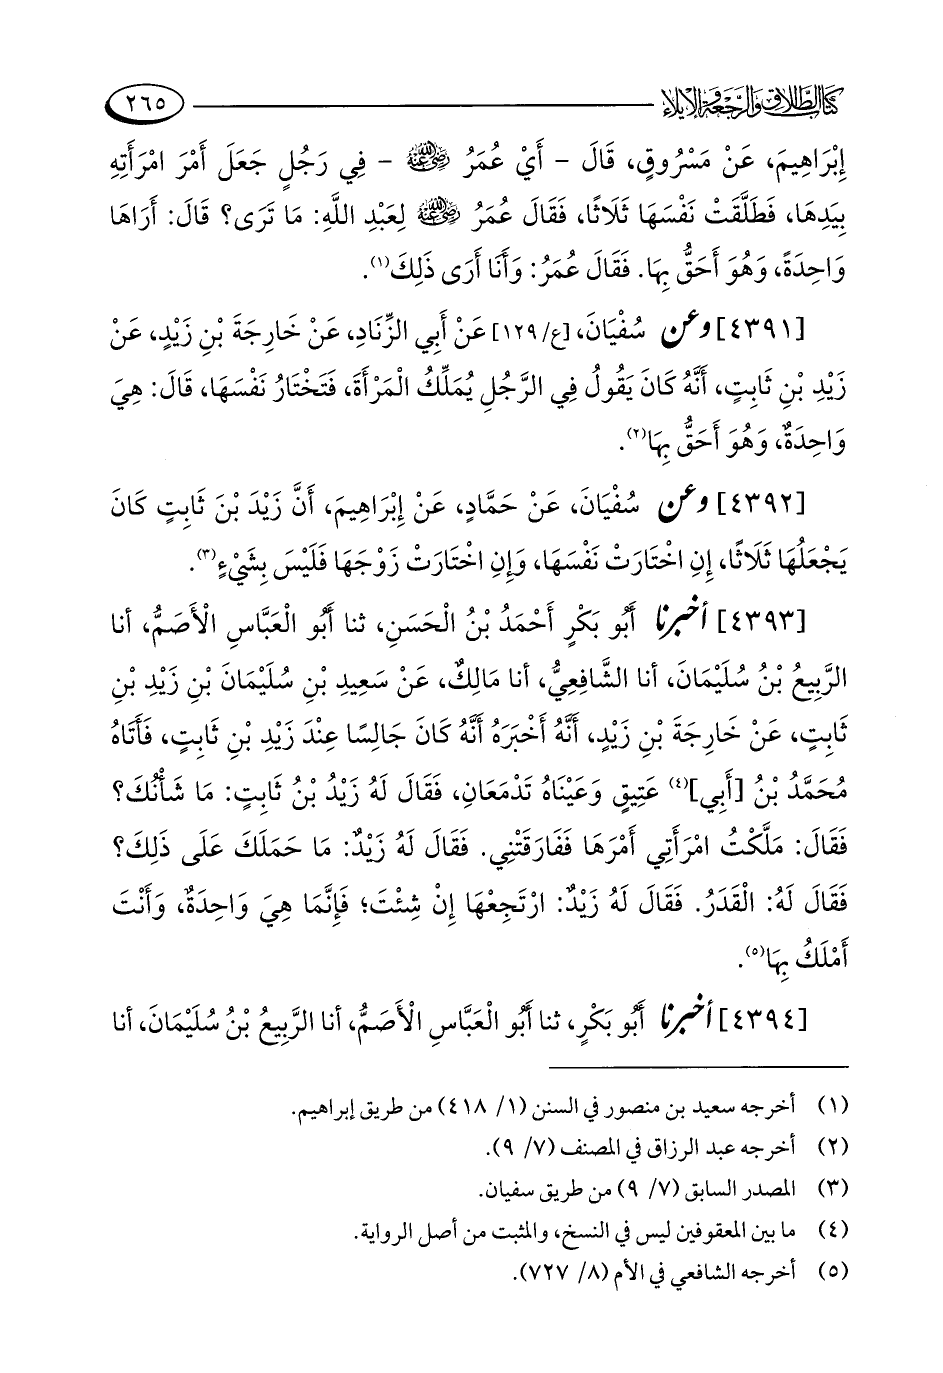 كتاب الطلاق والرجعة والإيلاء ٢٦٥
إِبْرَاهِيمَ، عَنْ مَسْرُوقٍ، قَالَ - أَيْ عُمَرُ ﵁ - فِي رَجُلٍ جَعَلَ أَمْرَ امْرَأَتِهِ
بِيَدِهَا، فَطَلَّقَتْ نَفْسَهَا ثَلَاثًا، فَقَالَ عُمَرُ ﵁ لِعَبْدِ اللَّهِ: مَا تَرَى؟ قَالَ: أَرَاهَا
وَاحِدَةً، وَهُوَ أَحَقُّ بِهَا. فَقَالَ عُمَرُ: وَأَنَا أَرَى ذَلِكَ(١).
[٤٣٩١] وعن سُفْيَانَ، [ع/١٢٩] عَنْ أَبِي الزِّنَادِ، عَنْ خَارِجَةَ بْنِ زَيْدٍ، عَنْ
زَيْدِ بْنِ ثَابِتٍ، أَنَّهُ كَانَ يَقُولُ فِي الرَّجُلِ يُمَلِّكُ الْمَرْأَةَ، فَتَخْتَارُ نَفْسَهَا، قَالَ: هِيَ
وَاحِدَةٌ، وَهُوَ أَحَقُّ بِهَا(٢).
[٤٣٩٢] وعن سُفْيَانَ، عَنْ حَمَّادٍ، عَنْ إِبْرَاهِيمَ، أَنَّ زَيْدَ بْنَ ثَابِتٍ كَانَ
يَجْعَلُهَا ثَلَاثًا، إِنِ اخْتَارَتْ نَفْسَهَا، وَإِنِ اخْتَارَتْ زَوْجَهَا فَلَيْسَ بِشَيْءٍ(٣).
[٤٣٩٣] أخبرنا أَبُو بَكْرٍ أَحْمَدُ بْنُ الْحَسَنِ، ثنا أَبُو الْعَبَّاسِ الْأَصَمُّ، أنا
الرَّبِيعُ بْنُ سُلَيْمَانَ، أنا الشَّافِعِيُّ، أنا مَالِكٌ، عَنْ سَعِيدِ بْنِ سُلَيْمَانَ بْنِ زَيْدِ بْنِ
ثَابِتٍ، عَنْ خَارِجَةَ بْنِ زَيْدٍ، أَنَّهُ أَخْبَرَهُ أَنَّهُ كَانَ جَالِسًا عِنْدَ زَيْدِ بْنِ ثَابِتٍ، فَأَتَاهُ
مُحَمَّدُ بْنُ [أَبِي](٤) عَتِيقٍ وَعَيْنَاهُ تَدْمَعَانِ، فَقَالَ لَهُ زَيْدُ بْنُ ثَابِتٍ: مَا شَأْنُكَ؟
فَقَالَ: مَلَّكْتُ امْرَأَتِي أَمْرَهَا فَفَارَقَتْنِي. فَقَالَ لَهُ زَيْدٌ: مَا حَمَلَكَ عَلَى ذَلِكَ؟
فَقَالَ لَهُ: الْقَدَرُ. فَقَالَ لَهُ زَيْدٌ: ارْتَجِعْهَا إِنْ شِئْتَ؛ فَإِنَّمَا هِيَ وَاحِدَةٌ، وَأَنْتَ
أَمْلَكُ بِهَا(٥).
[٤٣٩٤] أخبرنا أَبُو بَكْرٍ، ثنا أَبُو الْعَبَّاسِ الْأَصَمُّ، أنا الرَّبِيعُ بْنُ سُلَيْمَانَ، أنا
(١) أخرجه سعيد بن منصور في السنن (١/ ٤١٨) من طريق إبراهيم.
(٢) أخرجه عبد الرزاق في المصنف (٧/ ٩).
(٣) المصدر السابق (٧/ ٩) من طريق سفيان.
(٤) ما بين المعقوفين ليس في النسخ، والمثبت من أصل الرواية.
(٥) أخرجه الشافعي في الأم (٨/ ٧٢٧).